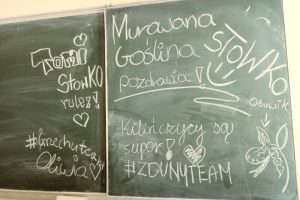 Tomi
StonKO
rulez!
#Grzechuteam
Oliwia
Murowana
Goślina
pozdrawia!
SŁOWKO
Obuwik
Kilińczycy są
super!
#ZDUNYTEAM